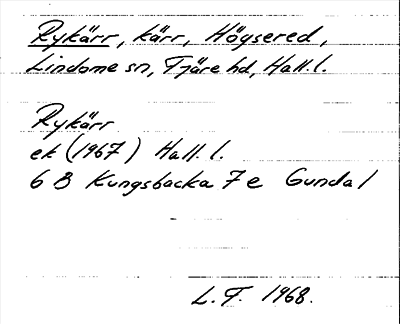 Rykärr, kärr, Högsered,
Lindome sn, Fjäre hd, Hall. l.
Rykärr
ek (1967) Hall. l.
6 B Kungsbacka 7 e Gundal
L. F. 1968.